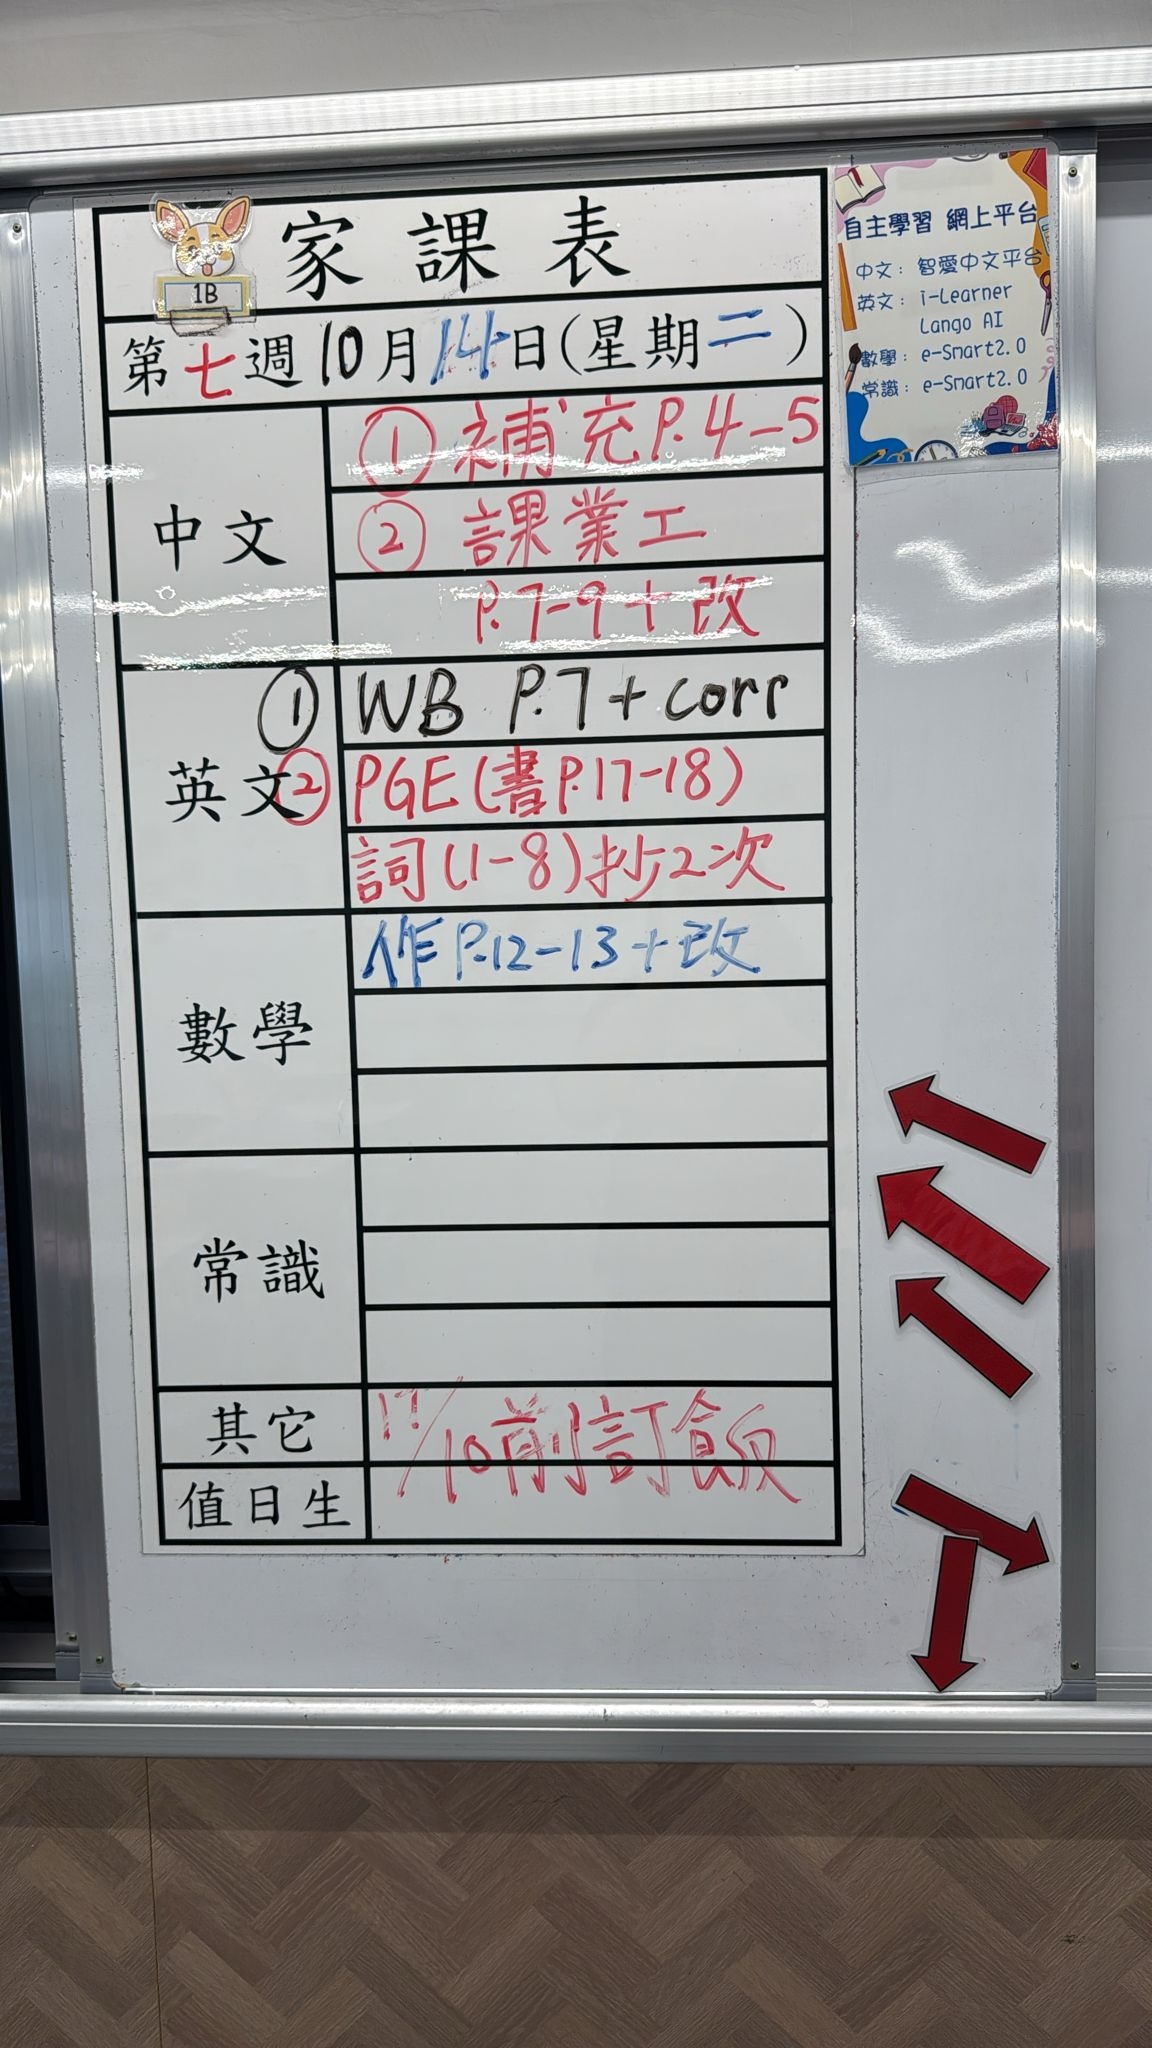 家課表
1B
第七週10月14日(星期二)
中文
① 補充P.4-5
② 課業工
P.7-9+改
英文
① WB P.7+corr
② PGE(書P.17-18)
詞(1-8)抄2次
數學
作P.12-13+改
常識
其它
17/10前訂飯
值日生
自主學習 網上平台
中文：智愛中文平台
英文：i-Learner
Lango AI
數學：e-Smart2.0
常識：e-Smart2.0